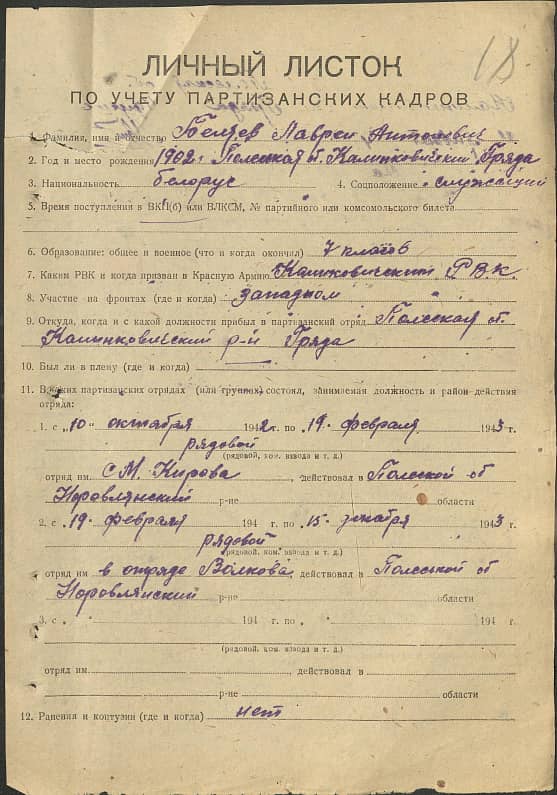 18
ЛИЧНЫЙ ЛИСТОК
ПО УЧЕТУ ПАРТИЗАНСКИХ КАДРОВ
1. Фамилия, имя и отчество Беляев Лаврен Антонович
2. Год и место рождения 1902 г Полесская об. Калинковический Гряда
3. Национальность белорус 4. Соцположение служащий
5. Время поступления в ВКП(б) или ВЛКСМ, № партийного или комсомольского билета
6. Образование: общее и военное (что и когда окончил) 7 классов
7. Каким РВК и когда призван в Красную Армию Калинковическим Р.В.К.
8. Участие на фронтах (где и когда) западном
9. Откуда, когда и с какой должности прибыл в партизанский отряд Полесская об.
Калинковический р-н Гряда
10. Был ли в плену (где и когда)
11. В каких партизанских отрядах (или группах) состоял, занимаемая должность и район действия
отряда:
1. с „10" октября 1942 г. по „19" февраля 1943 г.
рядовой
(рядовой, ком. взвода и т. д.)
отряд им С М. Кирова, действовал в Полеской об
Наровлянский р-не области
2. с „19" февраля 194 г. по „15" декабря 1943 г.
рядовой
(рядовой, ком. взвода и т. д.)
отряд им в отряде Волкова действовал в Полесской об
Наровлянский р-не области
3. с „ 194 г. по „ 194 г.
(рядовой, ком. взвода и т. д.)
отряд им. действовал в
р-не области
12. Ранения и контузии (где и когда) нет